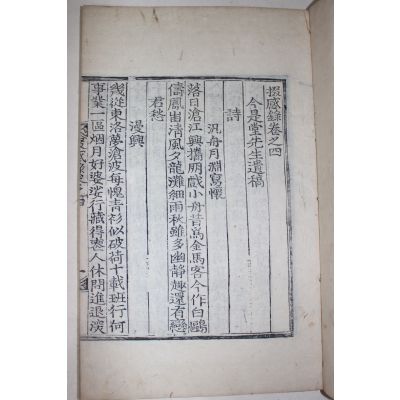 掇感錄卷之四
今是堂先生遺稿
詩
汎舟月淵寫懷
落日滄江興攜朋戱小舟昔爲金馬客今作白鷗
儔鳳出清風夕龍灘細雨秋雖多幽靜趣還有戀
君愁
漫興
幾從東洛夢滄波每愧靑衫似破荷十載班行何
事業一區烟月好婆娑行藏得喪人休問進退淡